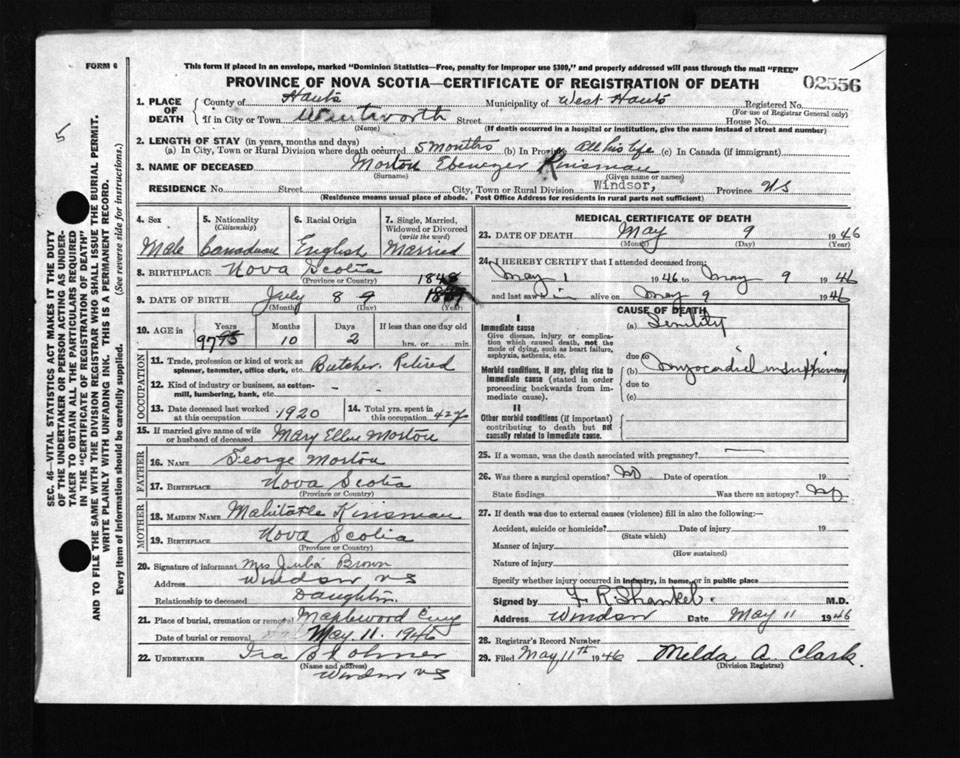 This form if placed in an envelope, marked "Dominion Statistics—Free, penalty for improper use $300," and properly addressed will pass through the mail "FREE"
FORM 6
PROVINCE OF NOVA SCOTIA—CERTIFICATE OF REGISTRATION OF DEATH
02556
5
SEC. 46—VITAL STATISTICS ACT MAKES IT THE DUTY
OF THE UNDERTAKER OR PERSON ACTING AS UNDER-
TAKER TO OBTAIN ALL THE PARTICULARS REQUIRED
IN THE "CERTIFICATE OF REGISTRATION OF DEATH"
AND TO FILE THE SAME WITH THE DIVISION REGISTRAR WHO SHALL ISSUE THE BURIAL PERMIT.
WRITE PLAINLY WITH UNFADING INK. THIS IS A PERMANENT RECORD.
Every item of Information should be carefully supplied. (See reverse side for instructions.)
1. PLACE OF DEATH
County of Hants Municipality of West Hants Registered No.
(For use of Registrar General only)
If in City or Town Wentworth Street House No.
(Name) (If death occurred in a hospital or institution, give the name instead of street and number)
2. LENGTH OF STAY (in years, months and days)
(a) In City, Town or Rural Division where death occurred 5 months (b) In Province All his life (c) In Canada (if immigrant)
3. NAME OF DECEASED Morton Ebenezer Kinsman
(Surname) (Given name or names)
RESIDENCE No. Street City, Town or Rural Division Windsor, Province NS
(Residence means usual place of abode. Post Office Address for residents in rural parts not sufficient)
4. Sex 5. Nationality 6. Racial Origin 7. Single, Married,
(Citizenship) Widowed or Divorced
(write the word)
Male Canadian English Married
8. BIRTHPLACE Nova Scotia
(Province or Country) 1848
9. DATE OF BIRTH July 8 9
(Month) (Day) (Year)
10. AGE in Years Months Days If less than one day old
97 10 2 hrs. or min.
OCCUPATION
11. Trade, profession or kind of work as
spinner, teamster, office clerk, etc. Butcher Retired
12. Kind of industry or business, as cotton-
mill, lumbering, bank, etc.
13. Date deceased last worked at this occupation 1920
14. Total yrs. spent in this occupation
15. If married give name of wife
or husband of deceased Mary Ellen Morton
FATHER
16. NAME George Morton
17. BIRTHPLACE Nova Scotia
(Province or Country)
MOTHER
18. MAIDEN NAME Kinsman
19. BIRTHPLACE Nova Scotia
(Province or Country)
20. Signature of informant Mrs Julia Brown
Address Windsor NS
Relationship to deceased Daughter
21. Place of burial, cremation or removal Maplewood Cmy
Date of burial or removal May 11. 1946
22. UNDERTAKER Ira
(Name and address)
Windsor NS
MEDICAL CERTIFICATE OF DEATH
23. DATE OF DEATH May 9 1946
(Month) (Day) (Year)
24. I HEREBY CERTIFY that I attended deceased from:
May 1 1946 to May 9 1946
and last saw him alive on May 9 1946
CAUSE OF DEATH
I
Immediate cause (a) Senility
Give disease, injury or complica-
tion which caused death, not the
mode of dying, such as heart failure,
asphyxia, asthenia, etc. due to
Morbid conditions, if any, giving rise to (b) Myocardial insufficiency
immediate cause (stated in order due to
proceeding backwards from im-
mediate cause). (c)
II
Other morbid conditions (if important)
contributing to death but not
causally related to immediate cause.
25. If a woman, was the death associated with pregnancy?
26. Was there a surgical operation? No Date of operation 19
State findings Was there an autopsy? No
27. If death was due to external causes (violence) fill in also the following:—
Accident, suicide or homicide? Date of injury 19
(State which)
Manner of injury
(How sustained)
Nature of injury
Specify whether injury occurred in industry, in home, or in public place
Signed by F R Shankel. M.D.
Address Windsor Date May 11 1946
28. Registrar's Record Number
29. Filed May 11th 1946 Melda A. Clark
(Division Registrar)